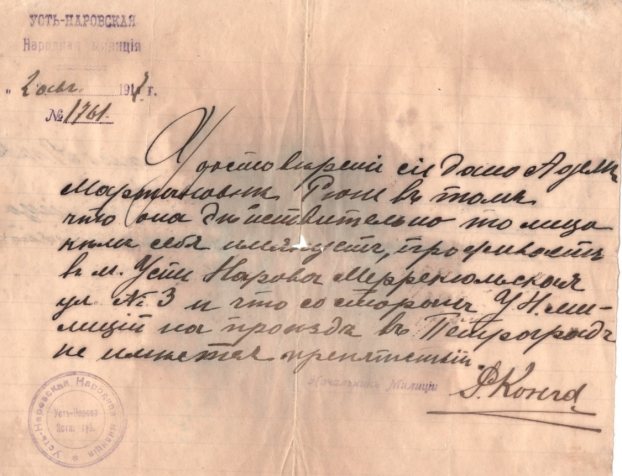 УСТЬ-НАРОВСКАЯ
Народная милиція
" 2 авг. 1917 г.
№ 1761.
Удостовѣреніе сіе дано Адели
Мартыновнѣ въ томъ
что она дѣйствительно то лицо
себя именуетъ, проживаетъ
въ м. Усть Нарова Меррекюльская
ул. № 3 и что со стороны У. Н. ми-
лиціи на проѣздъ въ Петроградъ
не имѣется препятствій.
Начальникъ Милиціи
Усть-Наровская Народная милиція
Усть-Нарова